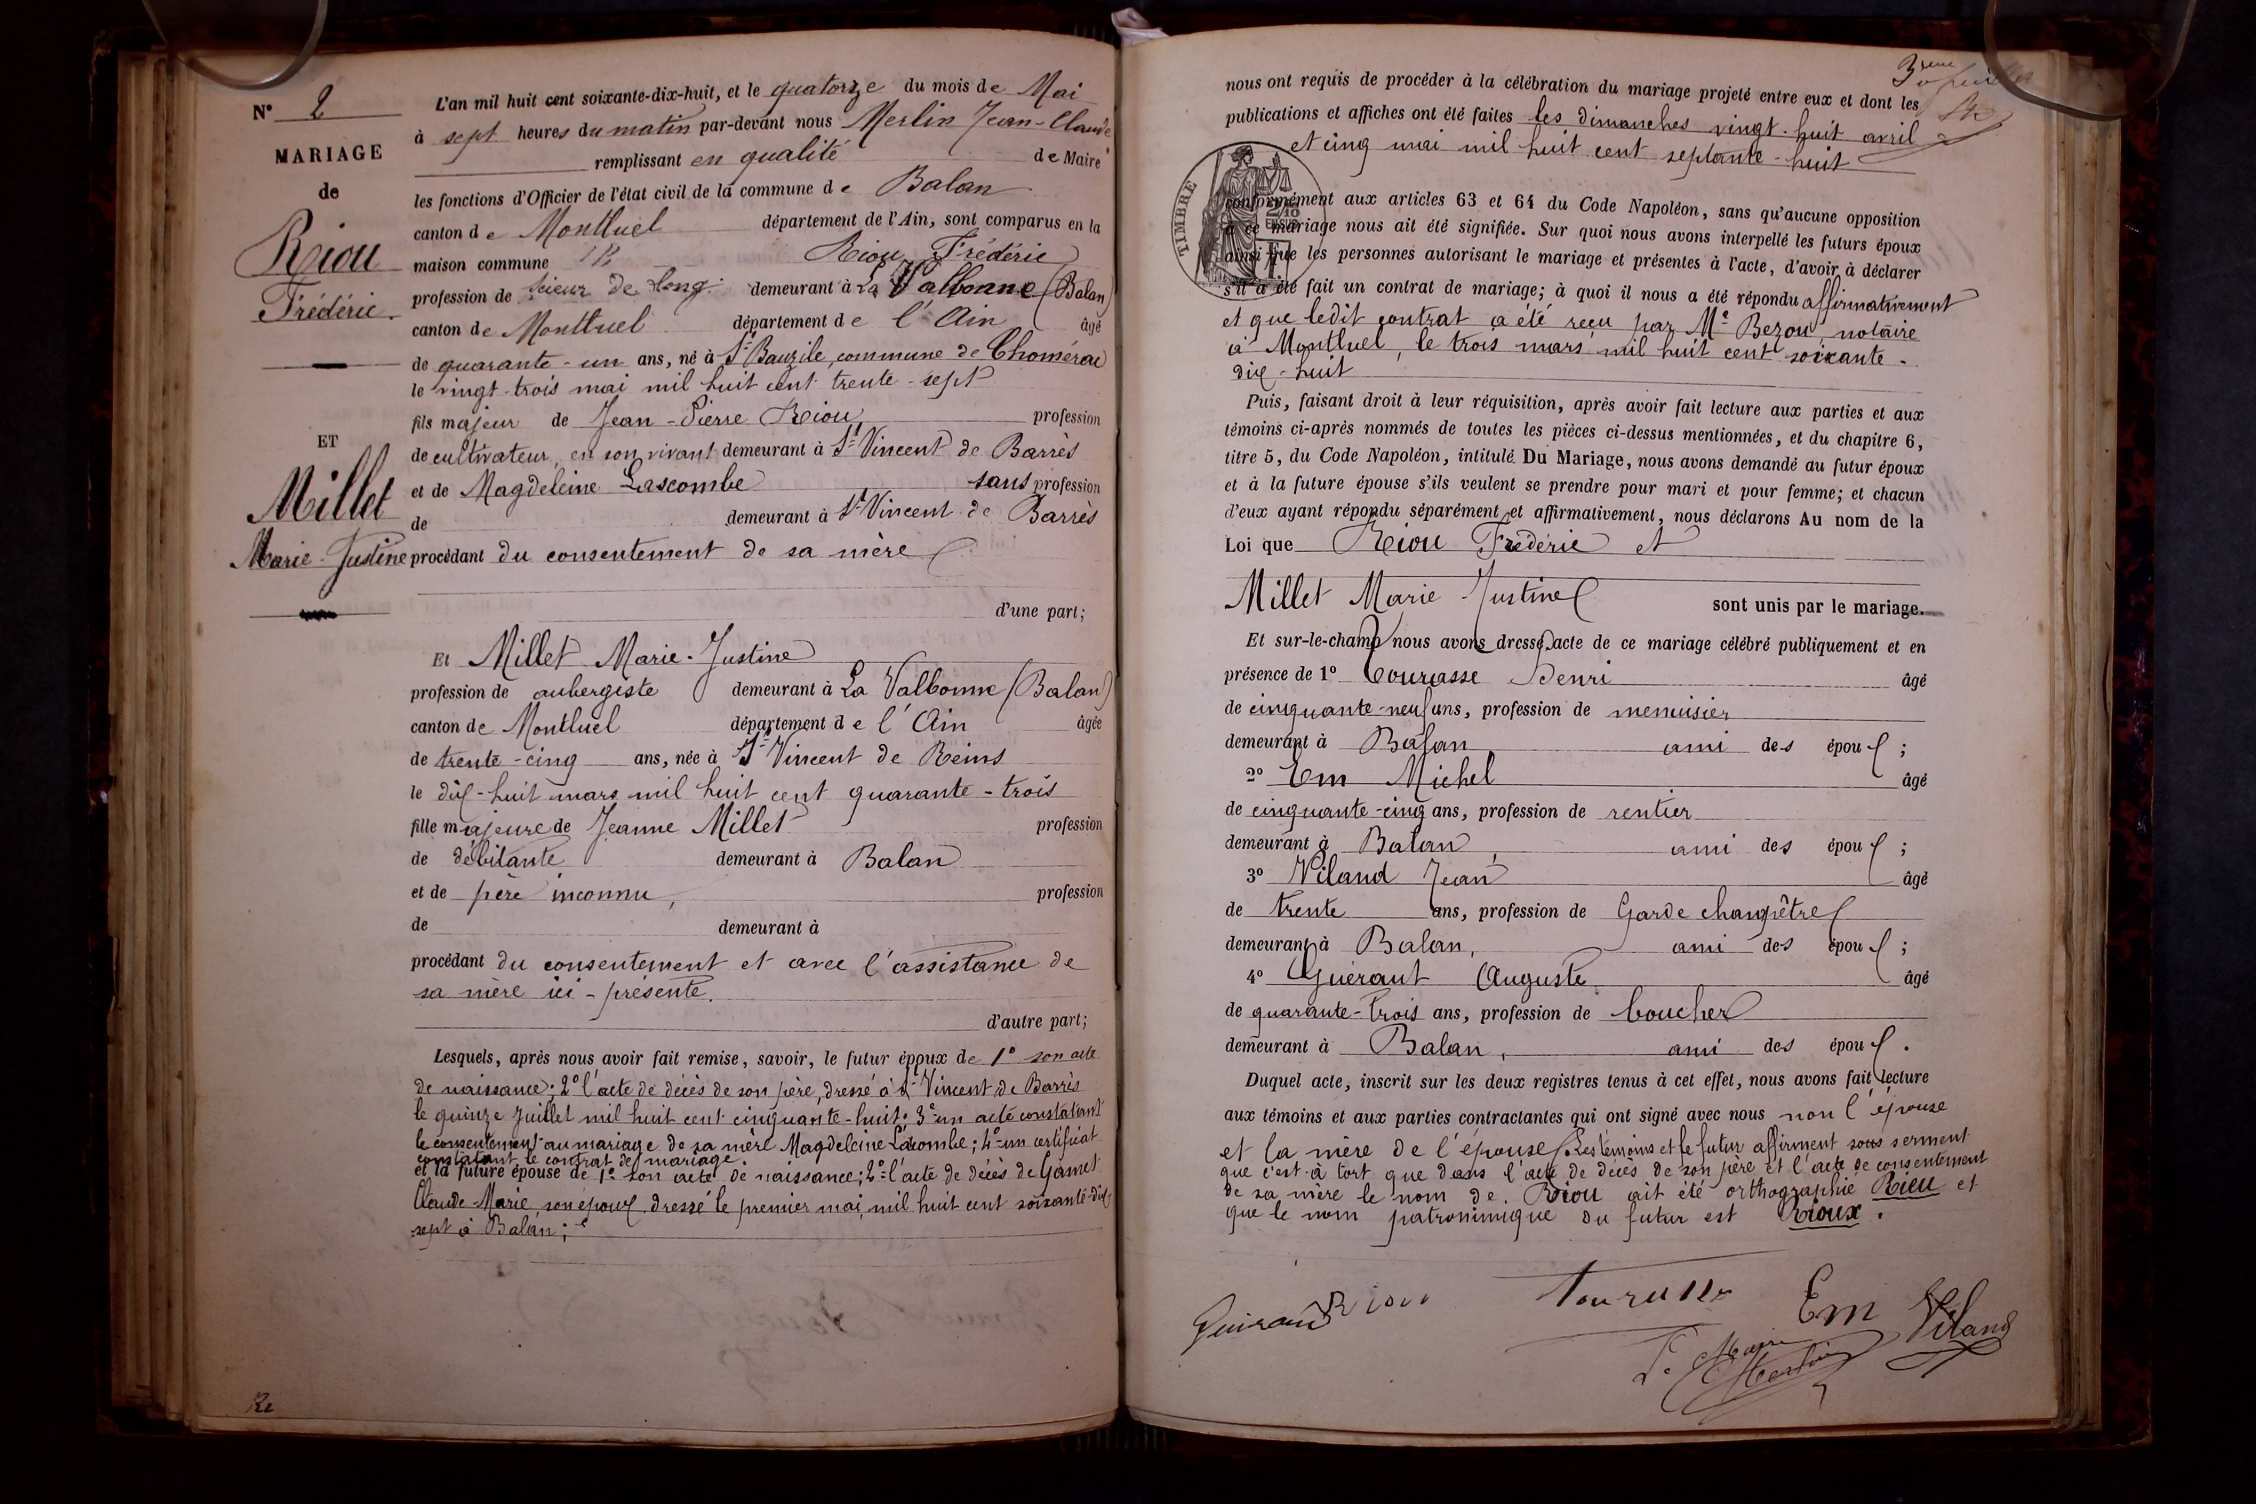 N° 2
MARIAGE
de
Riou
Frédéric
ET
Millet
Marie-Justine
L'an mil huit cent soixante-dix-huit, et le quatorze du mois de Mai
à sept heures du matin par-devant nous Merlin Jean-Claude
remplissant en qualité de Maire
les fonctions d'Officier de l'état civil de la commune de Balan
canton de Montluel département de l'Ain, sont comparus en la
maison commune Riou Frédéric
profession de scieur de long demeurant à La Valbonne (Balan)
canton de Montluel département de l'Ain âgé
de quarante-un ans, né à St Bauzile, commune de Chomérac
le vingt-trois mai mil huit cent trente-sept
fils majeur de Jean-Pierre Riou profession
de cultivateur, en son vivant demeurant à St Vincent de Barrès
et de Magdeleine Lascombe sans profession
de demeurant à St Vincent de Barrès
procédant du consentement de sa mère
d'une part;
Et Millet Marie-Justine
profession de aubergiste demeurant à La Valbonne (Balan)
canton de Montluel département de l'Ain âgée
de trente-cinq ans, née à St Vincent de Reins
le dix-huit mars mil huit cent quarante-trois
fille majeure de Jeanne Millet profession
de débitante demeurant à Balan
et de père inconnu, profession
de demeurant à
procédant du consentement et avec l'assistance de
sa mère ici-présente.
d'autre part;
Lesquels, après nous avoir fait remise, savoir, le futur époux de 1° son acte
de naissance; 2° l'acte de décès de son père, dressé à St Vincent de Barrès
le quinze Juillet mil huit cent cinquante-huit; 3° un acte constatant
le consentement au mariage de sa mère Magdeleine Lacombe; 4° un certificat
constatant le contrat de mariage
et la future épouse de 1° son acte de naissance; 2° l'acte de décès de Gamet
Claude-Marie son époux dressé le premier mai mil huit cent soixante-dix
sept à Balan;
nous ont requis de procéder à la célébration du mariage projeté entre eux et dont les
publications et affiches ont été faites les dimanches vingt-huit avril
et cinq mai mil huit cent septante-huit
TIMBRE
2/10
EN SUS
conformément aux articles 63 et 64 du Code Napoléon, sans qu'aucune opposition
à ce mariage nous ait été signifiée. Sur quoi nous avons interpellé les futurs époux
ainsi que les personnes autorisant le mariage et présentes à l'acte, d'avoir à déclarer
s'il a été fait un contrat de mariage; à quoi il nous a été répondu affirmativement
et que ledit contrat a été reçu par Me Bezou, notaire
à Montluel, le trois mars mil huit cent soixante-
dix-huit
Puis, faisant droit à leur réquisition, après avoir fait lecture aux parties et aux
témoins ci-après nommés de toutes les pièces ci-dessus mentionnées, et du chapitre 6,
titre 5, du Code Napoléon, intitulé Du Mariage, nous avons demandé au futur époux
et à la future épouse s'ils veulent se prendre pour mari et pour femme; et chacun
d'eux ayant répondu séparément et affirmativement, nous déclarons Au nom de la
Loi que Riou Frédéric et
Millet Marie Justine sont unis par le mariage.
Et sur-le-champ nous avons dressé acte de ce mariage célébré publiquement et en
présence de 1° Tourasse Henri âgé
de cinquante-neuf ans, profession de menuisier
demeurant à Balan ami des époux;
2° Em Michel âgé
de cinquante-cinq ans, profession de rentier
demeurant à Balan, ami des époux;
3° Viland Jean âgé
de trente ans, profession de Garde champêtre
demeurant à Balan, ami des époux;
4° Guéraut Auguste âgé
de quarante-trois ans, profession de boucher
demeurant à Balan, ami des époux.
Duquel acte, inscrit sur les deux registres tenus à cet effet, nous avons fait lecture
aux témoins et aux parties contractantes qui ont signé avec nous non l'épouse
et la mère de l'épouse. Les témoins et le futur affirment sous serment
que c'est à tort que dans l'acte de décès de son père et l'acte de consentement
de sa mère le nom de Riou ait été orthographié Rieu et
que le nom patronimique du futur est Rioux.
Guiraud Riou Tourasse Em Viland
Le Maire
Merlin